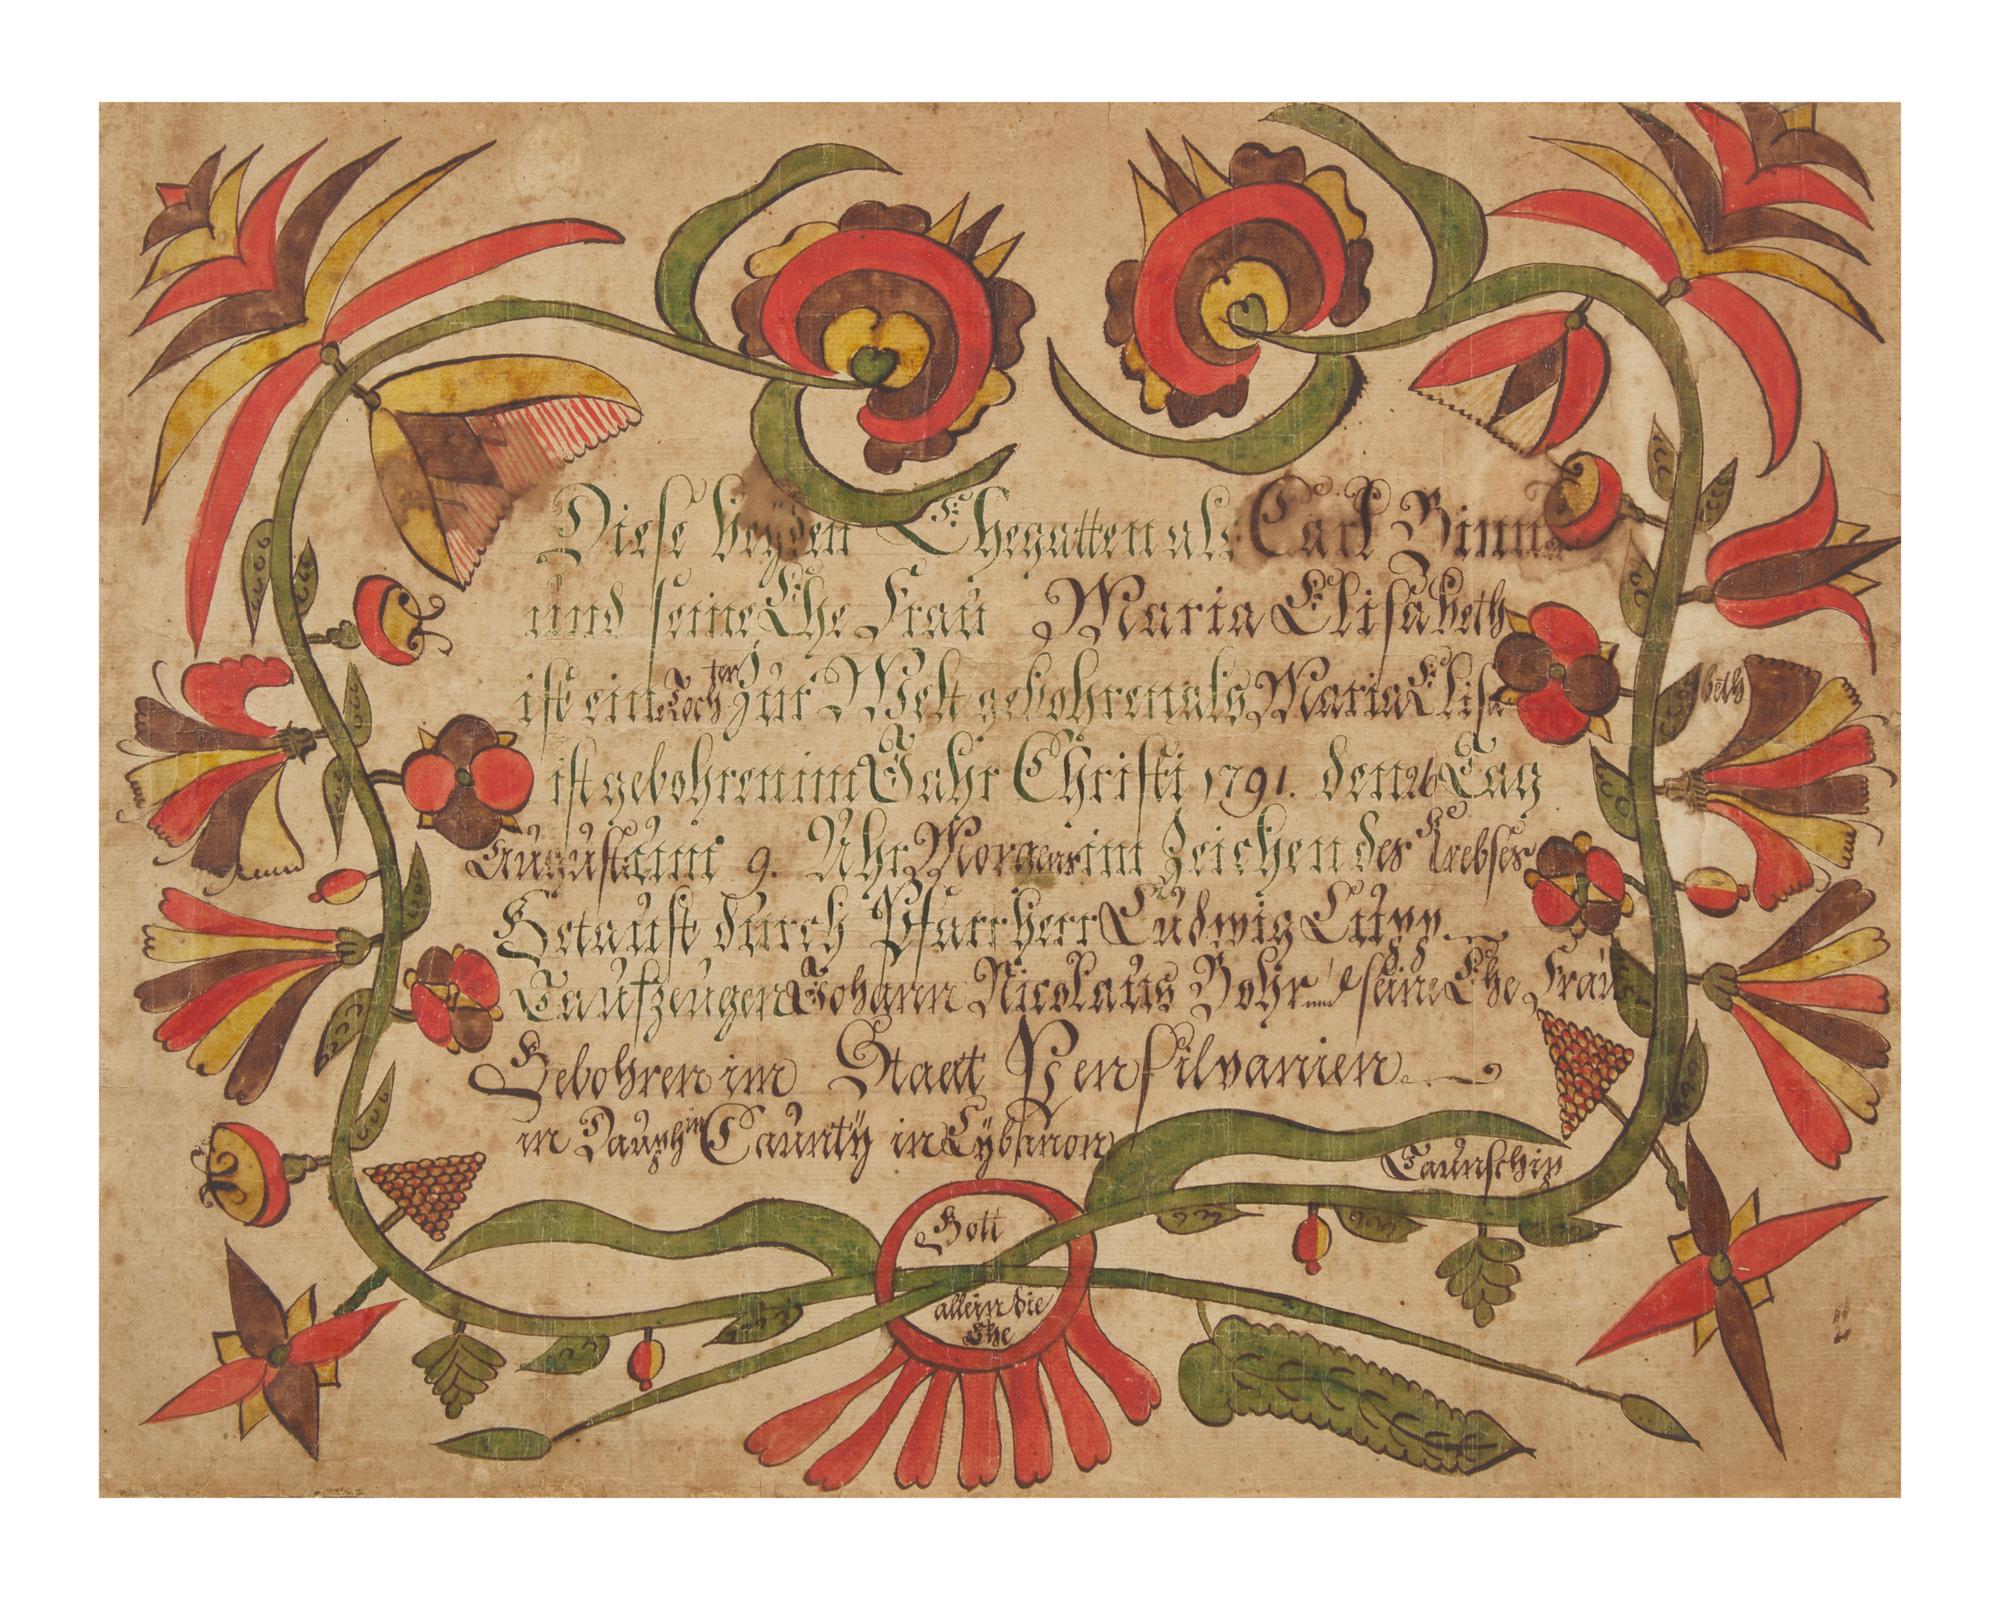 Diese beyden Ehegatten als Carl Binner
und seine Ehe Frau Maria Elisabeth
ist eine Tochter zur Welt gebohren als Maria Elisabeth
ist gebohren im Jahr Christi 1791. den 26 Tag
August um 9. Uhr Morgens im Zeichen des Krebses
Getauft durch Pfarrherr Ludwig Lupp.
Taufzeugen Johann Nicolaus Bohr und seine Ehe Frau
Gebohren im Staat Pensilvanien
in Dauphin Caunty in Lybanon Taunschip
Gott
allein die
Ehe